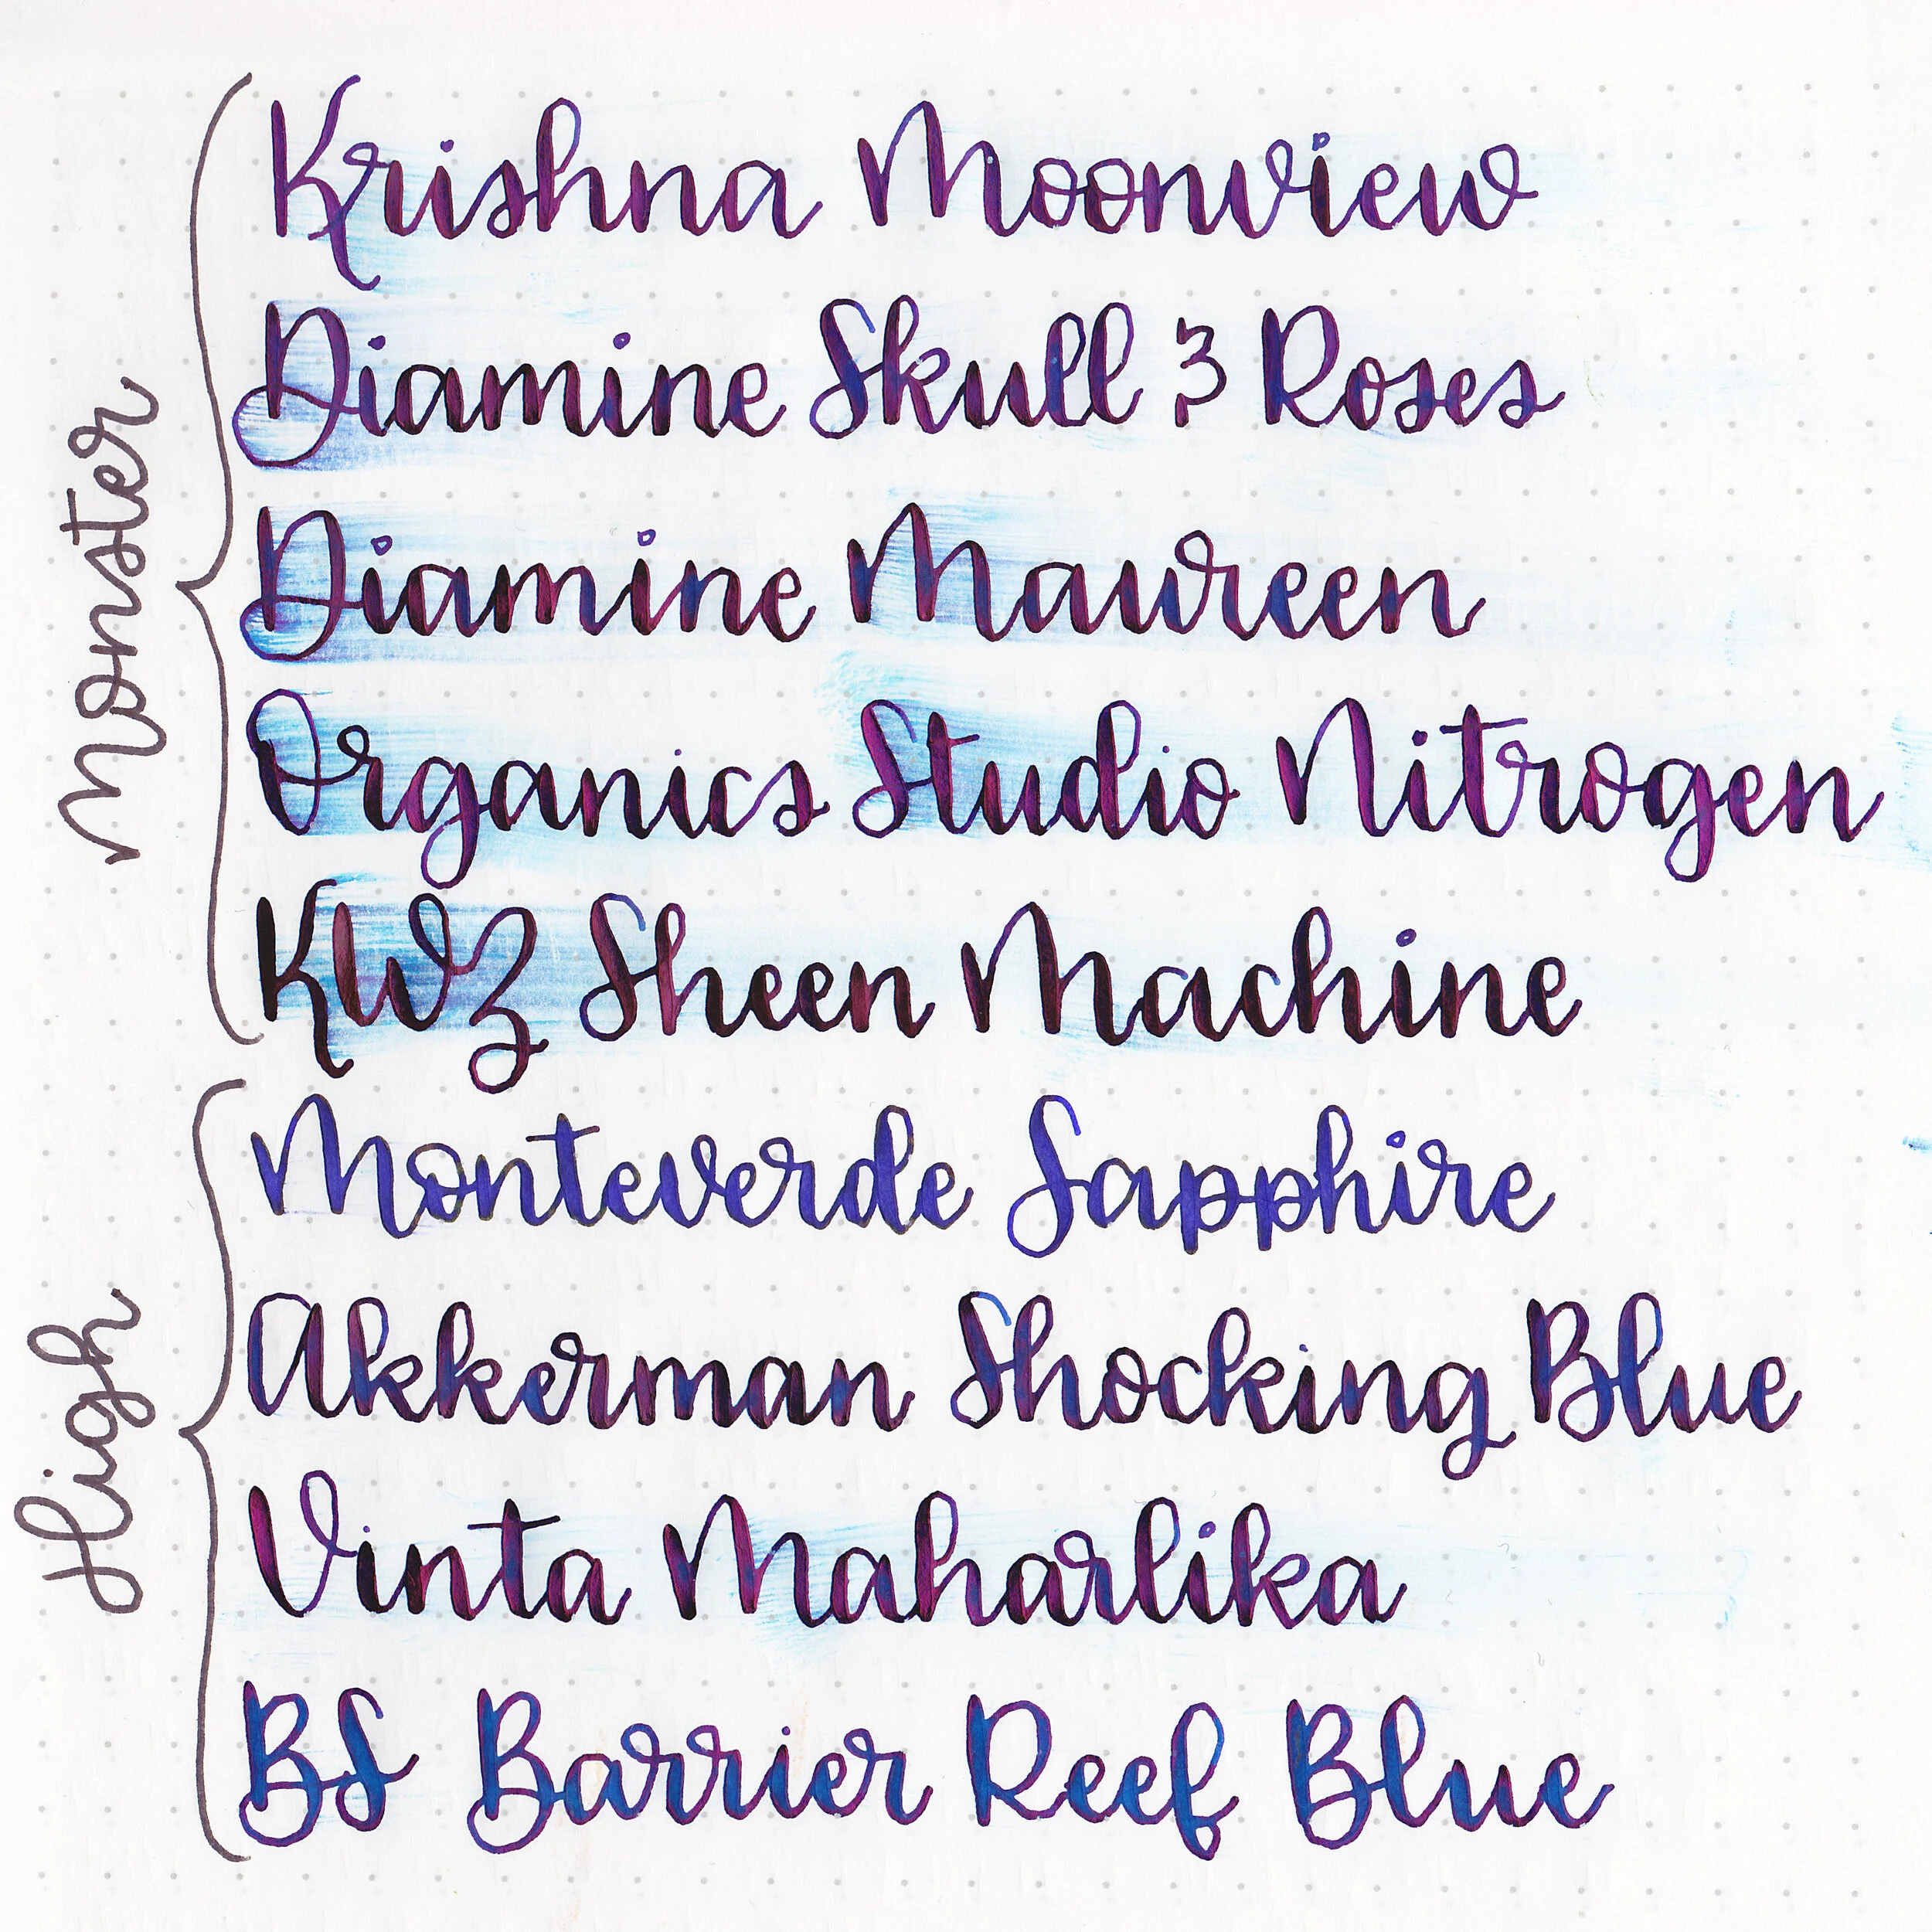 Monster
Krishna Moonview
Diamine Skull & Roses
Diamine Maureen
Organics Studio Nitrogen
KWZ Sheen Machine
High
Monteverde Sapphire
Akkerman Shocking Blue
Vinta Maharlika
BS Barrier Reef Blue